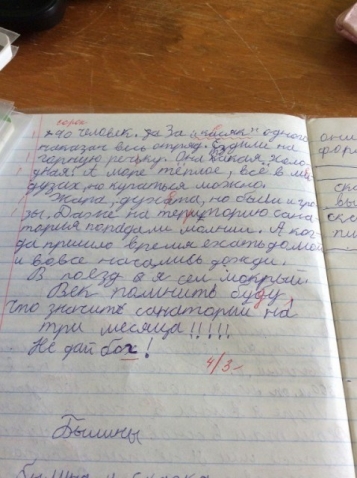 сорок
> 40 человек. За За "косяк" одного
наказан весь отряд. Ездили на
горную речку. Она такая холо-
дная. А море тёплое, всё в ме-
дузах, но купаться можно.
Жара, духота, но были и гро-
зы. Даже на территорию сана-
тория попадали молнии. А ког-
да пришло время ехать домой
и вовсе начались дожди.
В поезд я сел мокрый.
Век помнить буду,
что значит санаторий на
три месяца!!!!!
Не дай бох!
4/3-
Былины